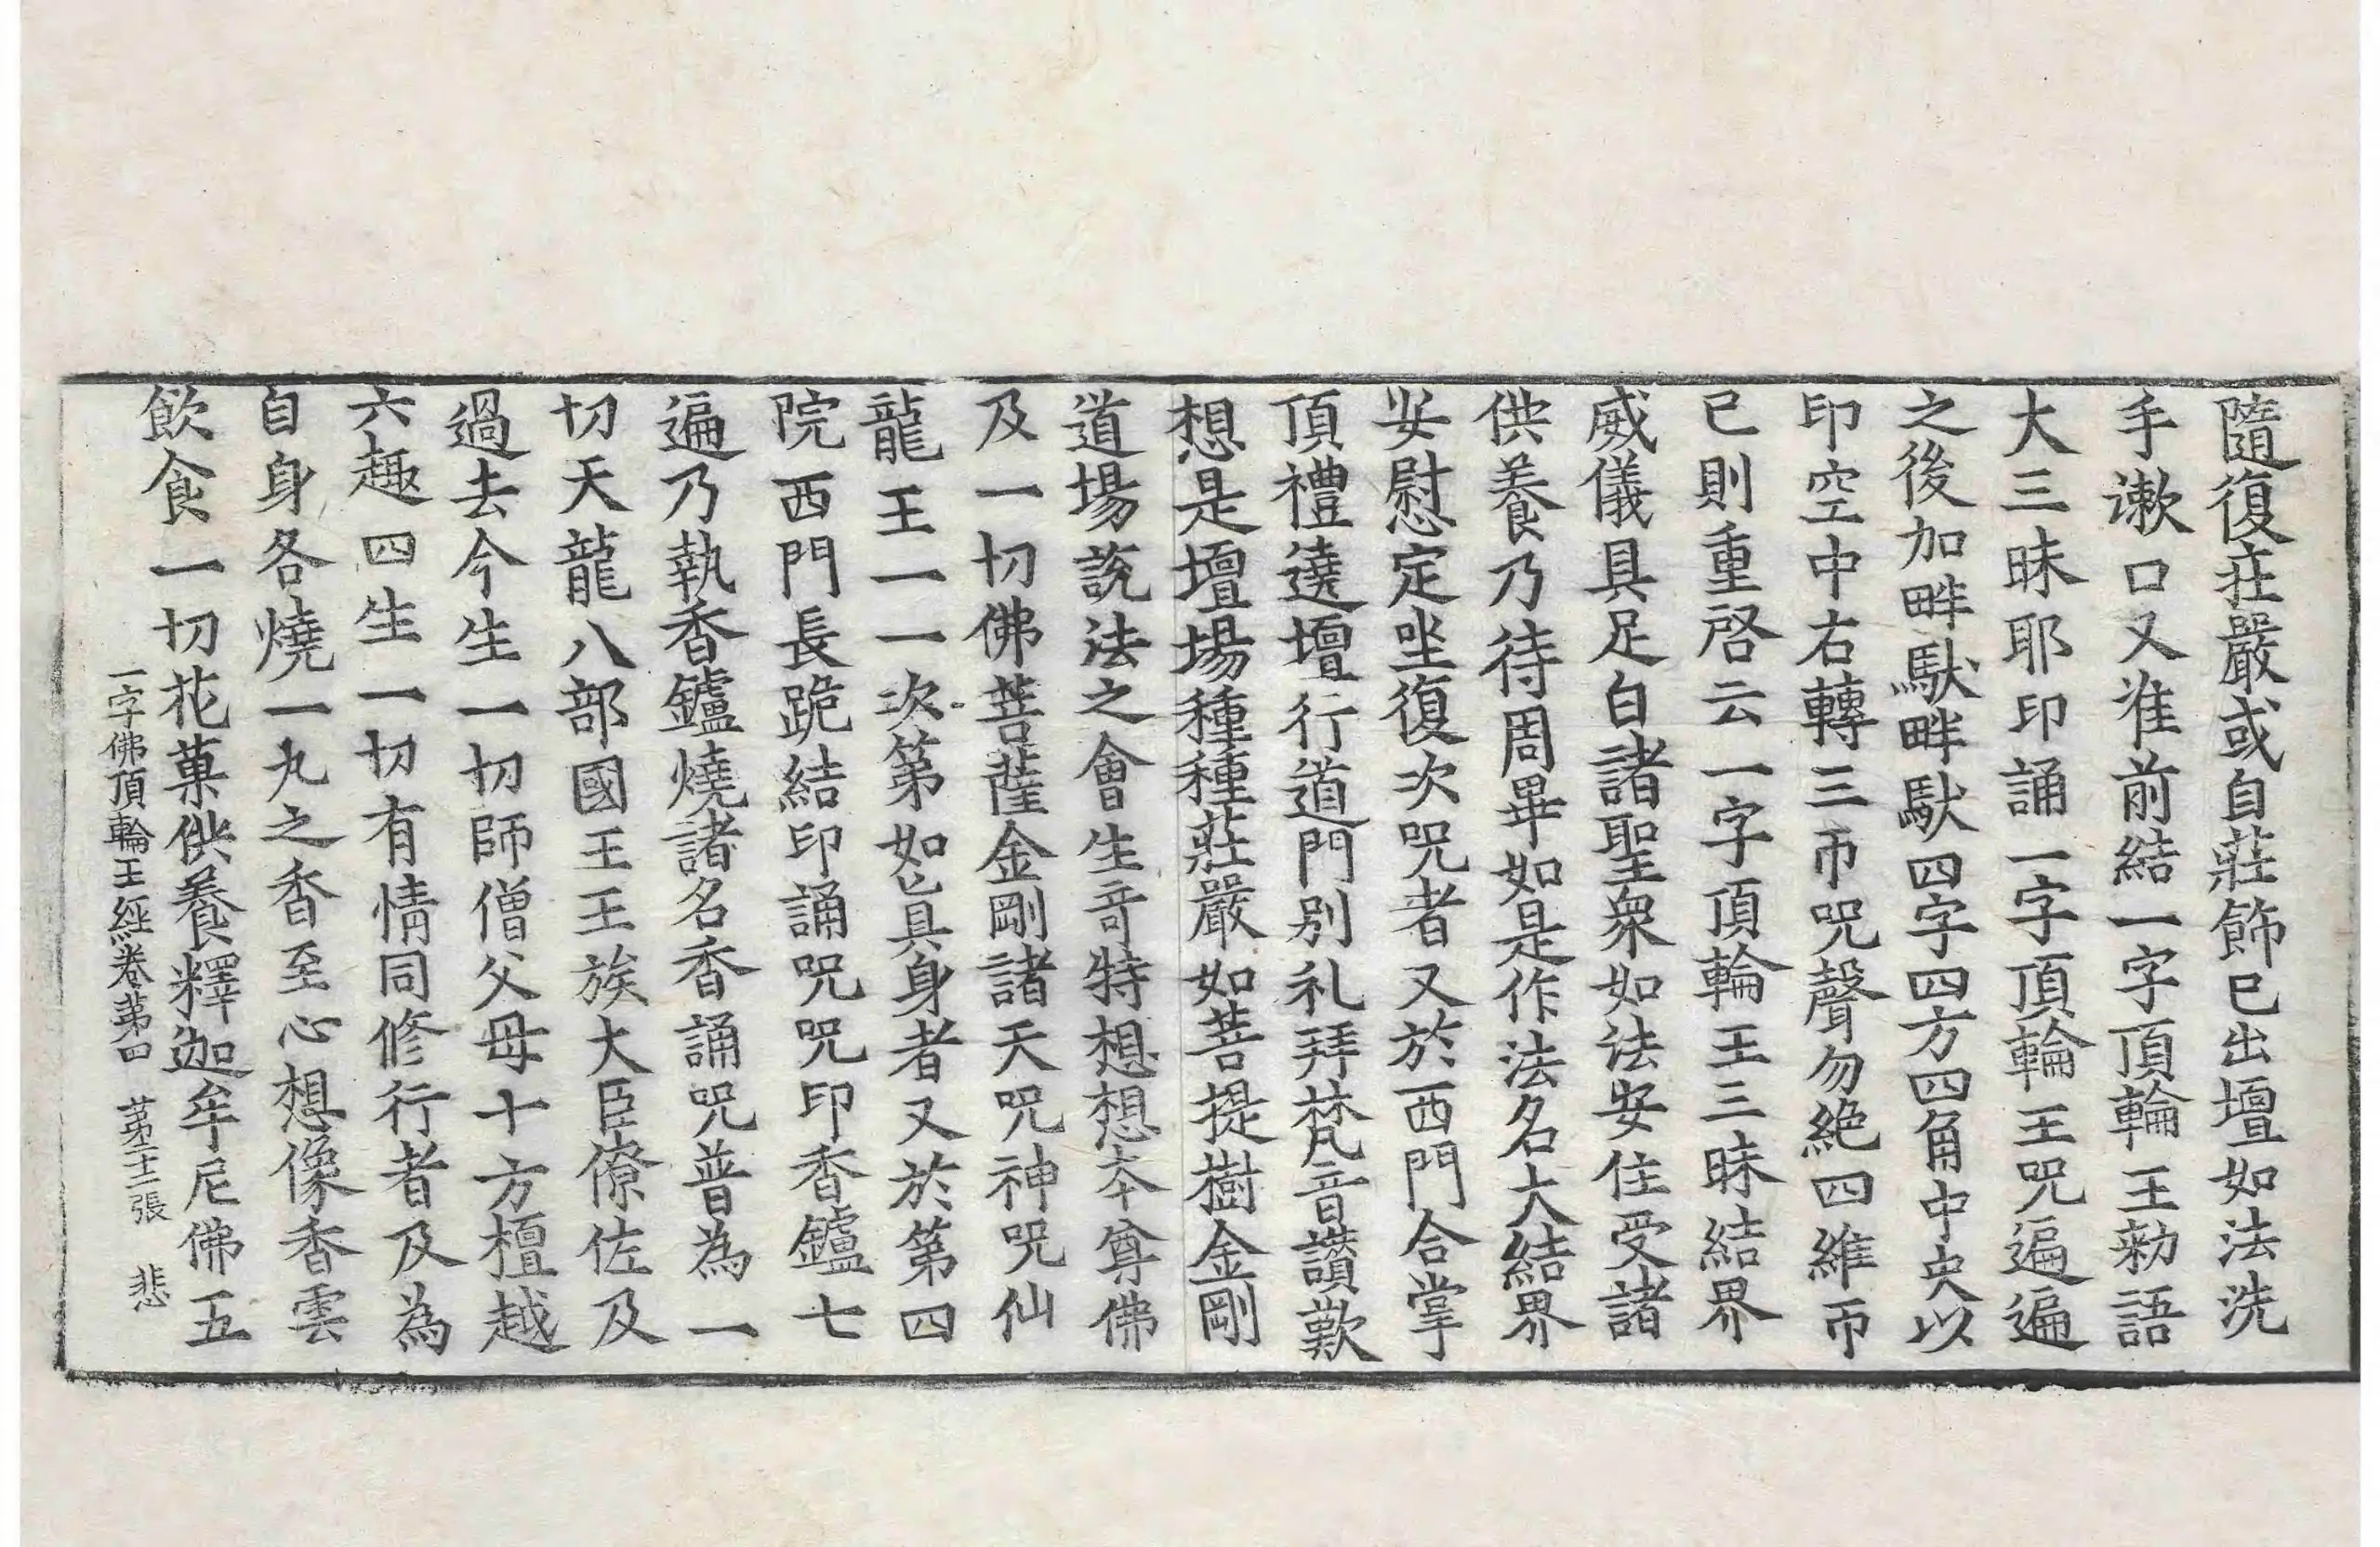 隨復莊嚴或自莊飾已出壇如法洗
手漱口又准前結一字頂輪王勑語
大三昧耶印誦一字頂輪王咒遍遍
之後加畔馱畔馱四字四方四角中央以
印空中右轉三帀咒聲勿絶四維帀
已則重啓云一字頂輪王三昧結界
威儀具足白諸聖衆如法安住受諸
供養乃待周畢如是作法名大結界
安慰定坐復次咒者又於西門合掌
頂禮遶壇行道門別礼拜梵音讃歎
想是壇場種種莊嚴如菩提樹金剛
道場說法之會生竒特想想本尊佛
及一切佛菩薩金剛諸天咒神咒仙
龍王一一次第如㠯具身者又於第四
院西門長跪結印誦咒咒印香鑪七
遍乃執香鑪燒諸名香誦咒普為一
切天龍八部國王王族大臣僚佐及
過去今生一切師僧父母十方檀越
六趣四生一切有情同修行者及為
自身各燒一丸之香至心想像香雲
飲食一切花菓供養釋迦牟尼佛五
一字佛頂輪王經卷第四 第十二張 悲